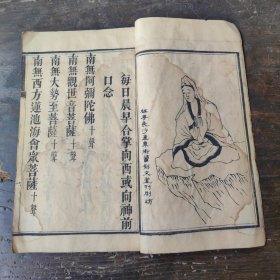 每日晨早合掌向西或向神前
口念
南無阿彌陀佛十聲
南無觀世音菩薩十聲
南無大勢至菩薩十聲
南無西方蓮池海會眾菩薩十聲